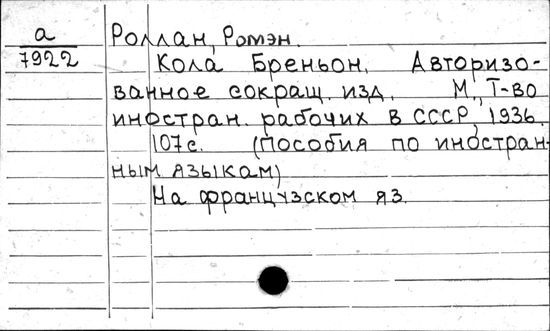 а
7922
Роллан, Ромэн.
Кола Бреньон. Авторизо-
ванное сокращ. изд. М., Т-во
иностран. рабочих в СССР, 1936.
107 с. (Пособия по иностран-
ным языкам)
На французском яз.